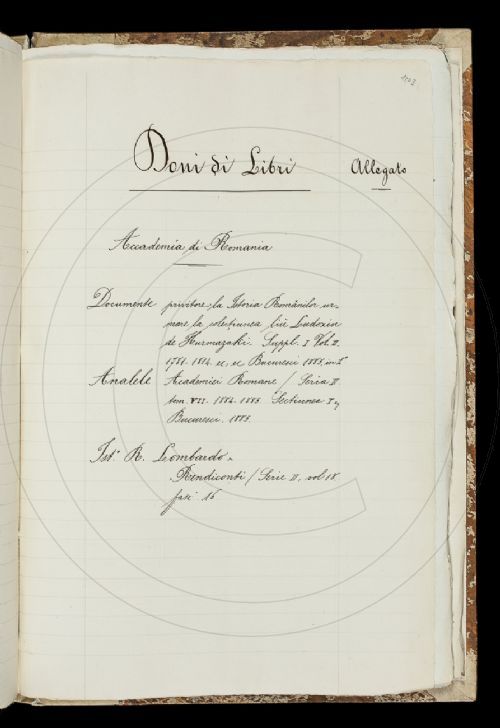 Doni di Libri Allegato
Accademia di Romania
Documente privitore la Istoria Românilor ur-
mare la colectiunea lui Eudoxiu
de Hurmuzaki. Suppl. I Vol. II.
1781. 1814. ec, ec Bucuresci 1885 in 4°
Analele Academiei Romane / Seria II
tom. VII. 1884. 1885. Sectiunea I
Bucuresci. 1885.
Ist.° R. Lombardo.
Rendiconti / Serie II, vol 18
fasc 15